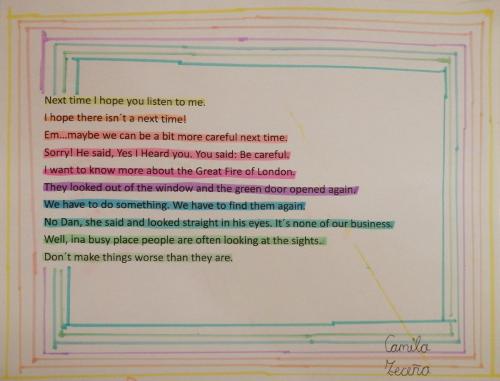 Next time I hope you listen to me.
I hope there isn´t a next time!
Em...maybe we can be a bit more careful next time.
Sorry! He said, Yes I Heard you. You said: Be careful.
I want to know more about the Great Fire of London.
They looked out of the window and the green door opened again.
We have to do something. We have to find them again.
No Dan, she said and looked straight in his eyes. It´s none of our business.
Well, ina busy place people are often looking at the sights..
Don´t make things worse than they are.
Camila
Zeceña